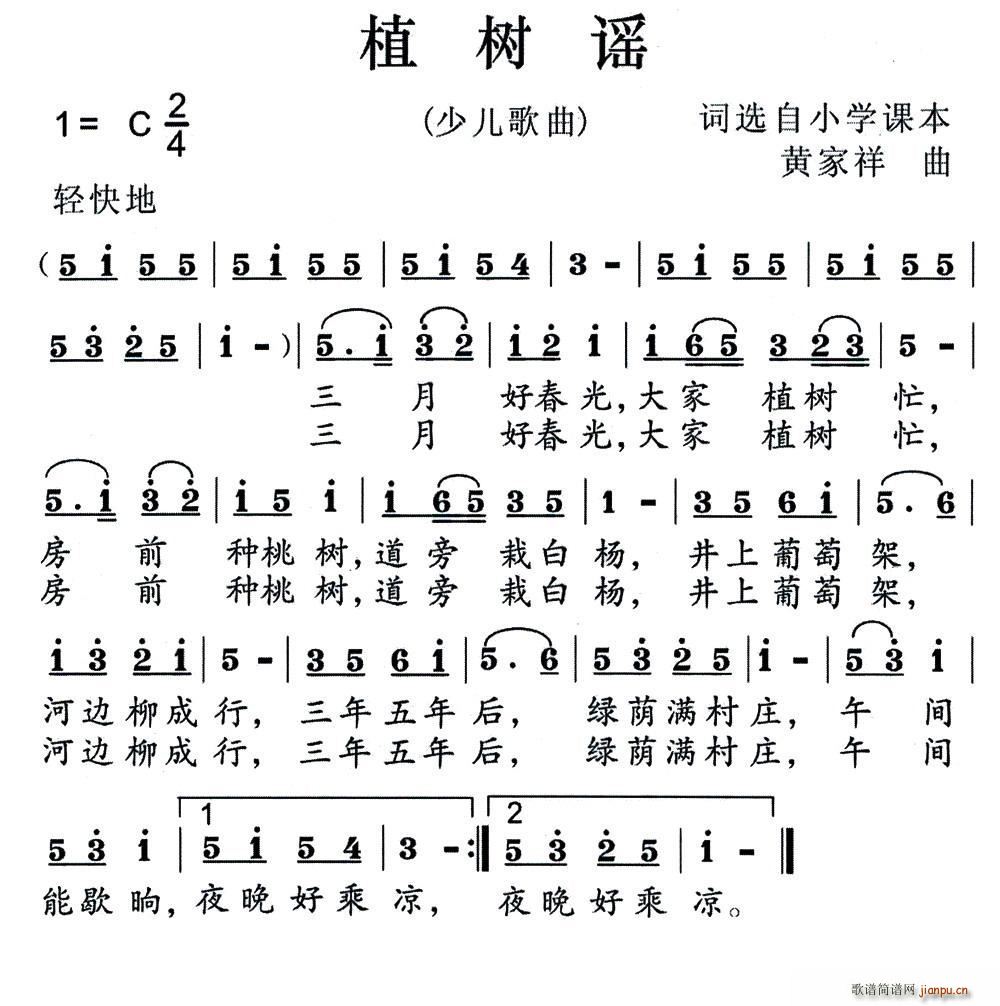 植 树 谣
1= C 2/4 (少儿歌曲) 词选自小学课本
黄家祥 曲
轻快地
( 5 i̇ 5 5 | 5 i̇ 5 5 | 5 i̇ 5 4 | 3 - | 5 i̇ 5 5 | 5 i̇ 5 5 |
5 3̇ 2̇ 5 | i̇ - ) | 5 . i̇ 3̇ 2̇ | i̇ 2̇ i̇ | i̇ 6 5 3 2 3 | 5 - |
三 月 好春光,大家 植树 忙,
三 月 好春光,大家 植树 忙,
5 . i̇ 3̇ 2̇ | i̇ 5 i̇ | i̇ 6 5 3 5 | 1 - | 3 5 6 i̇ | 5 . 6 |
房 前 种桃 树,道旁 栽白 杨, 井上葡萄 架,
房 前 种桃 树,道旁 栽白 杨, 井上葡萄 架,
i̇ 3̇ 2̇ i̇ | 5 - | 3 5 6 i̇ | 5 . 6 | 5 3̇ 2̇ 5 | i̇ - | 5 3̇ i̇ |
河边柳成 行, 三年五年 后, 绿荫满村 庄, 午 间
河边柳成 行, 三年五年 后, 绿荫满村 庄, 午 间
1 2
5 3̇ i̇ | 5 i̇ 5 4 | 3 - :‖ 5 3̇ 2̇ 5 | i̇ - ‖
能歇晌,夜晚好乘 凉, 夜晚好乘 凉。
歌谱简谱网
jianpu.cn